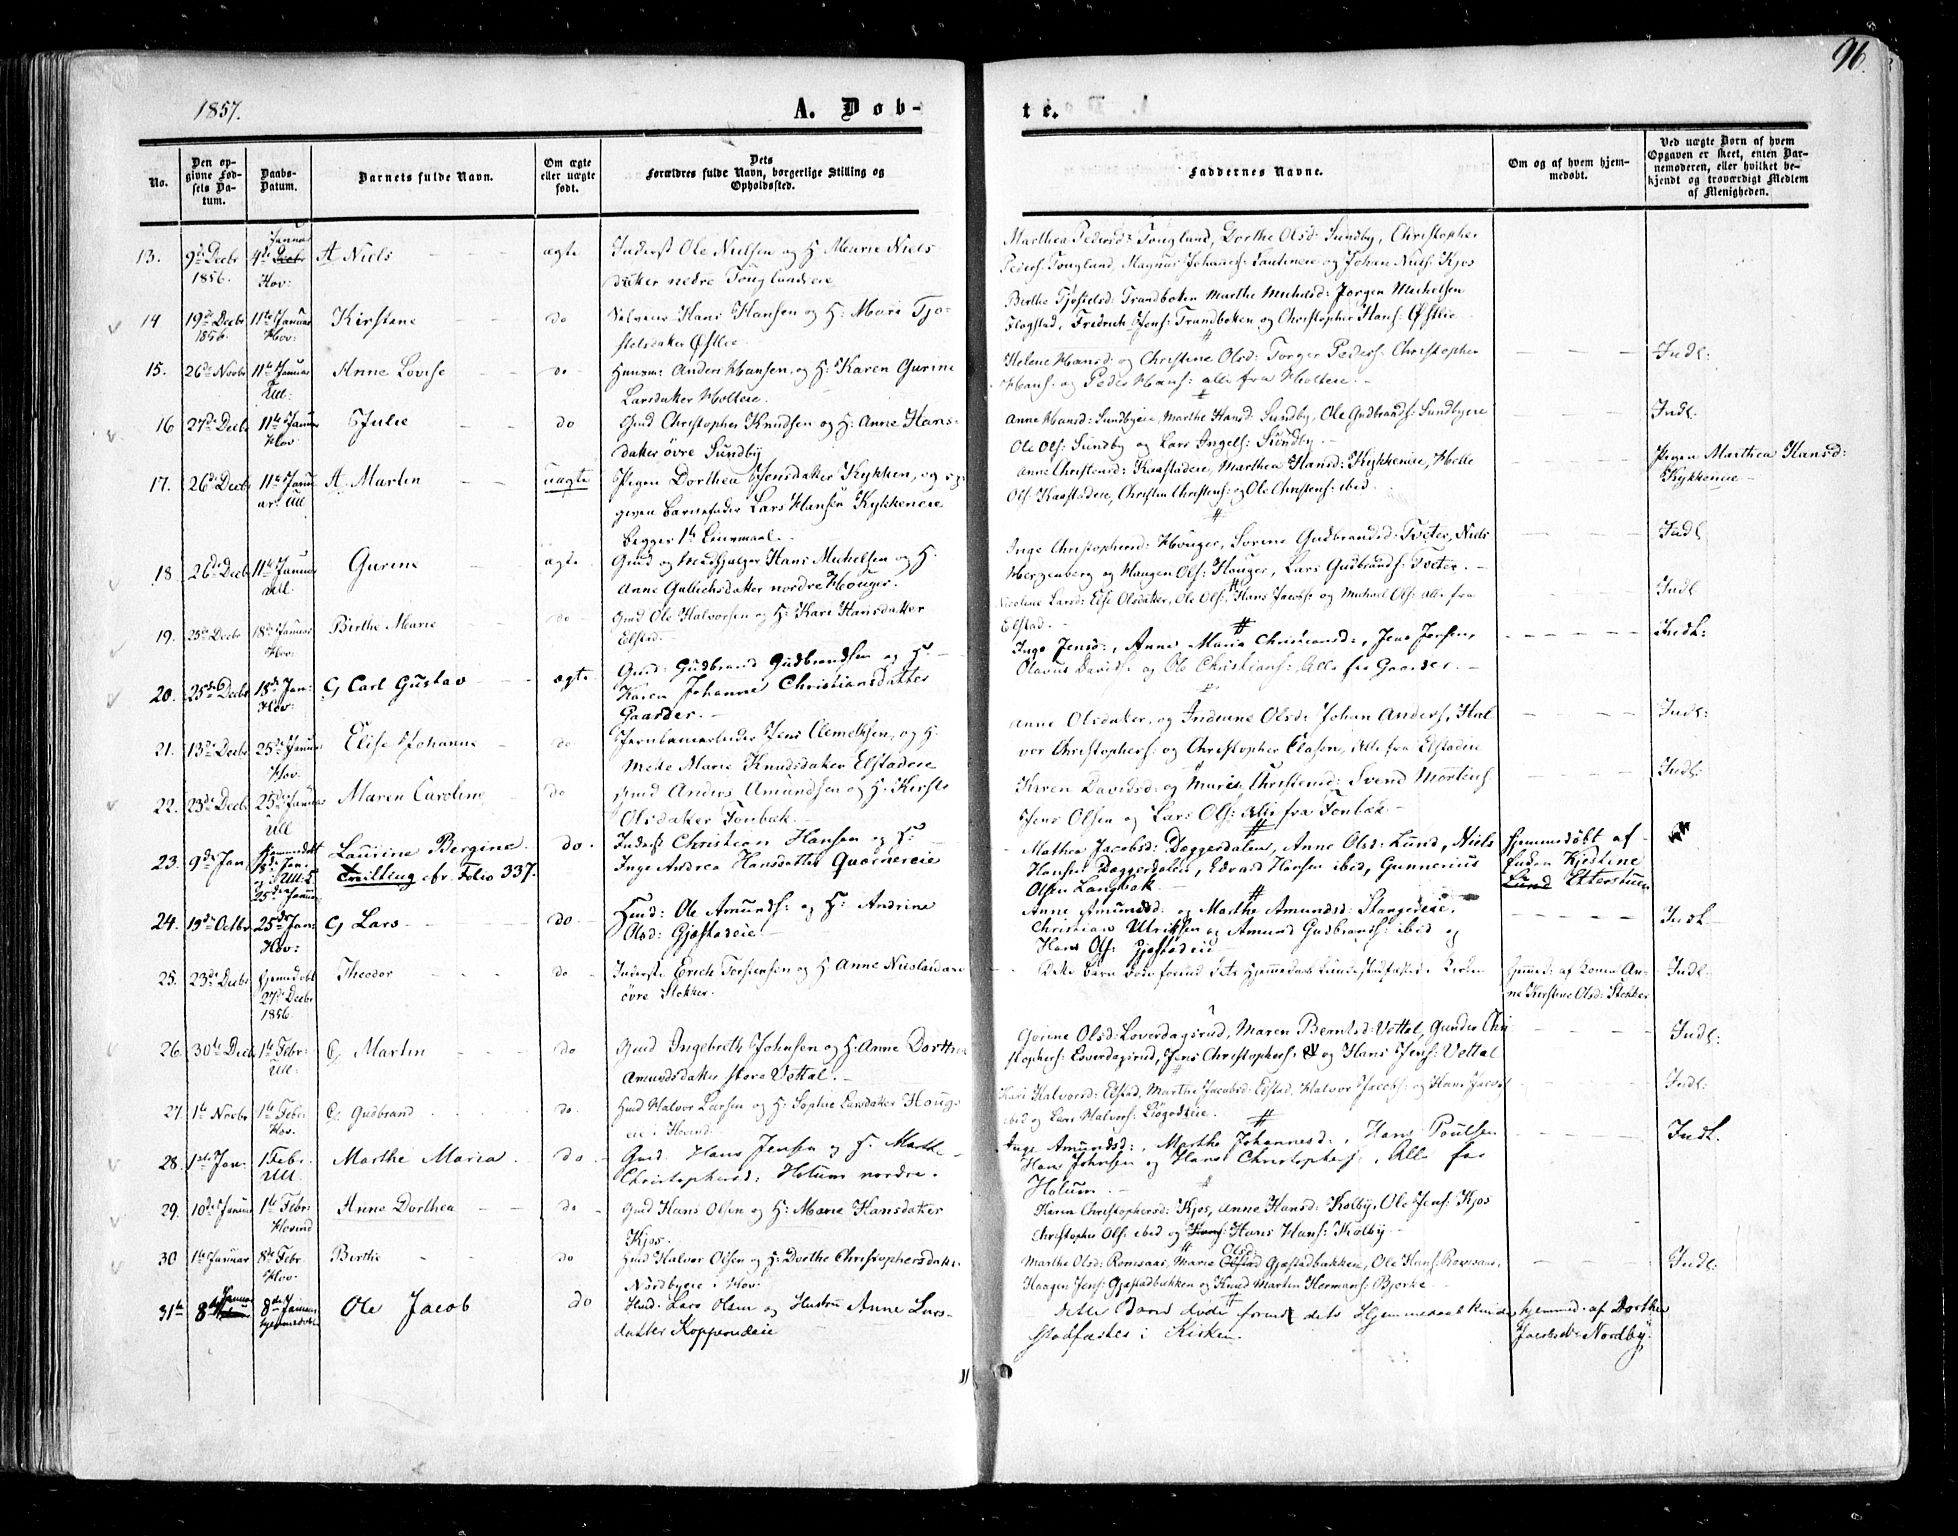 96.
1857.
A. Døb-
te.
No.
Den op-
givne Fød-
sels Da-
tum.
Daabs-
Datum.
Barnets fulde Navn.
Om ægte
eller uægte
født.
Dets
Forældres fulde Navn, borgerlige Stilling og
Opholdssted.
Faddernes Navne.
Om og af hvem hjem-
medøbt.
Ved uægte Børn af hvem
Opgaven er skeet, enten Bar-
nemoderen, eller hvilket be-
kjendt og troværdigt Medlem
af Menigheden.
13. 9de Decbr 1856. 4de Januar Hov: Niels ægte
Inderst Ole Nielsen og H. Marie Niels-
datter nedre Fouglundeie
Marthea Pedersd: Fougland, Dorthe Olsd: Sundby, Christopher
Peders: Fougland, Magnus Johannes: og Johan Niels: Kjos
14 19de Decbr 1856. 11te Januar Hov: Kirstine do
Hans Hansen og H: Mari Tjø-
stelsdatter Østlie
Birthe Tjøstelsd: Trandbøken Marthe Michelsd: Jørgen Michelsen
Flogstad, Fredrich Jens: Trandbøken og Christopher Hans: Østlie
15. 26de Novbr 11te Januar Ull. Anne Lovise do
Huusm: Anders Hansen og H: Karen Gurine
Larsdatter Holteie.
Helene Hansd: og Christine Olsd: Torger Peders: Christopher
Hans: og Peder Hans: alle fra Holteie.
Indl:
16 27de Decbr 11te Januar Hov Julie do
Gmd Christopher Knudsen og H: Anne Hans-
datter øvre Sundby
Anne Hansd: Sundbyeie, Marthe Hansd: Sundby, Ole Gudbrands: Sundbyeie
Ole Ols: Sundby og Lars Ingels: Sundby.
Indl.
17. 26de Decbr 11te Januar: Ull Martin uægte
Pigen Dorthea Jensdatter Kykken, og op-
given Barnefader Lars Hansen Kykkeneie
begges 1te Leiermaal.
Anne Christensd: Kaastadeie, Marthea Hansd: Kykkeneie, Helle
Ols: Kaastadeie, Christen Christens: og Ole Christens: ibid.
Pigen Marthea Hansd:
Kykkeneie
18 26de Decbr 11te Januar Ull. Gurine ægte
Gmd og Medhjelper Hans Michelsen og H.
Anne Gullichsdatter nordre Houger.
Inge Christophersd: Houger, Sorine Gudbrandsd: Tveter, Niels
Hergenberg og Haagen Ols: Houger, Lars Gudbrands: Tveter.
Indl
19. 25de Decbr 18de Januar Hov: Birthe Marie do
Gmd Ole Halvorsen og H: Kari Hansdatter
Elstad.
Nicoline Larsd: Else Olsdatter, Ole Ols: Hans Jacobs: og Michael Ols: alle fra
Elstad.
Indl
20. 25de Decbr 18de Jan: Hov: Carl Gustav ægte
Gmd: Gudbrand Gudbrandsen og H:
Karen Johanne Christiansdatter
Gaarder.
Inge Jensd:, Anne Maria Christiansd:, Jens Jensen,
Olavus Davids: og Ole Christians: Alle fra Gaarder.
Indl:
21. 13de Decbr 25de Januar Hov. Elise Johanne do
Jernbanearbeider Jens Clemetsen, og H.
Mette Marie Knudsdatter Elstadeie
Anne Olsdatter, og Indiane Olsd: Johan Anders:, Hal
vor Christophers: og Christopher Olasen, Alle fra Elstadeie
Indl:
22. 23de Decbr 25de Januar Ull Maren Caroline do
Gmd Anders Amundsen og H. Kirsti
Olsdatter Fonbæk.
Karen Davidsd: og Maries Christensd: Svend Mortens:
Jens Olsen og Lars Ols: Alle fra Fonbæk
Indl:
23. 9de Jan Hjemmedøbt 18de Jan. 25de Januar Laurine Bergine.
Tvilling cfr. Folio 337. do.
Inderst Christian Hansen og H:
Inge Andrea Hansdatter Quærnereie
Mathea Jacobsd: Daggerdalen, Anne Olsd: Lund, Niels
Hansen Daggerdalen, Edvard Hansen ibid, Gunnerius
Olsen Langbak
Hjemmedøbt af
Enken Kjerstine
Lund Etterstuen
24. 19de Octbr 25de Jan: Hov: Lars do
Hmd: Ole Amunds: og H: Andrine
Olsd: Gjøstadeie
Anne Amundsd: og Marthe Amundsd: Stangereie,
Christian Ulriksen og Amund Gudbrands: ibid og
Hans Ols: Gjøstadeie
Indl
25. 23de Decbr hjemmedøbt 27de Decbr 1856 Theodor do
Inderst Erich Torstensen og H Anne Nicolaidatter
øvre Slokker.
Dette Barn døde forind dets Hjemmedaab kunde stadfæstes i Kirken
hjemmed: af Konen An-
ne Kirstine Olsd: Slokker
Indl:
26. 30te Decb 1te Febr: Ull: Martin do
Gmd Ingebreth Johnsen og H. Anne Dorthea
Amundsdatter store Vettal.
Gorine Olsd: Loverdagsrud, Maren Berntsd: Vettal, Gunder Chri
stophers: Loverdagsrud, Jens Christophers: og Hans Jens: Vettal
Indl:
27 1te Novbr 1te Febr: Hov. Gudbrand do.
Hmd Halvor Larsen og H: Sophie Larsdatter Houg-
eie i Hovind.
Kari Halvorsd: Elstad, Marthe Jacobsd: Elstad, Halvor Jacobs: og Hans Jacobs:
ibid og Lars Halvors: Liøgodteie.
Indl:
28. 1ste Jan. 1 Febr. Ull. Marthe Maria. do
Gmd. Hans Jensen og H. Marthe
Christophersd: Holum nordre.
Inge Amundsd:, Marthe Johannesd:, Hans Poulsen
Hans Johnsen og Hans Christophers:, Alle fra
Holum.
Indl.
29. 10de Januar 1te Febr: Hovind Anne Dorthea do
Gmd Hans Olsen og H: Marie Hansdatter
Kjos.
Karen Christophersd: Kjos, Anne Hansd: Kolby, Ole Jens: Kjos
Christopher Ols: ibid og Hans Hans: Kolby
30 1te Januar 8de Febr Hov. Birthe do
Hmd Halvor Olsen og H: Dorthe Christophersdatter
Nordbyeie i Hov.
Marthe Olsd: Romsaas, Marie Olsd: Gjøstadbakken, Ole Hans: Romsaas,
Haagen Jens: Gjøstadbakken og Knud Martin Hermans: Bjerke
Indl:
31te 8de Januar 8de Januar hjemmedøbt Ole Jacob do
Hmd: Lars Olsen og Hustru Anne Lars-
datter Kopperudeie
Dette Barn døde forind dets Hjemmedaab kunde
stadfæstes i Kirken.
hjemmed. af Dorthea
Jacobsdr Nordby